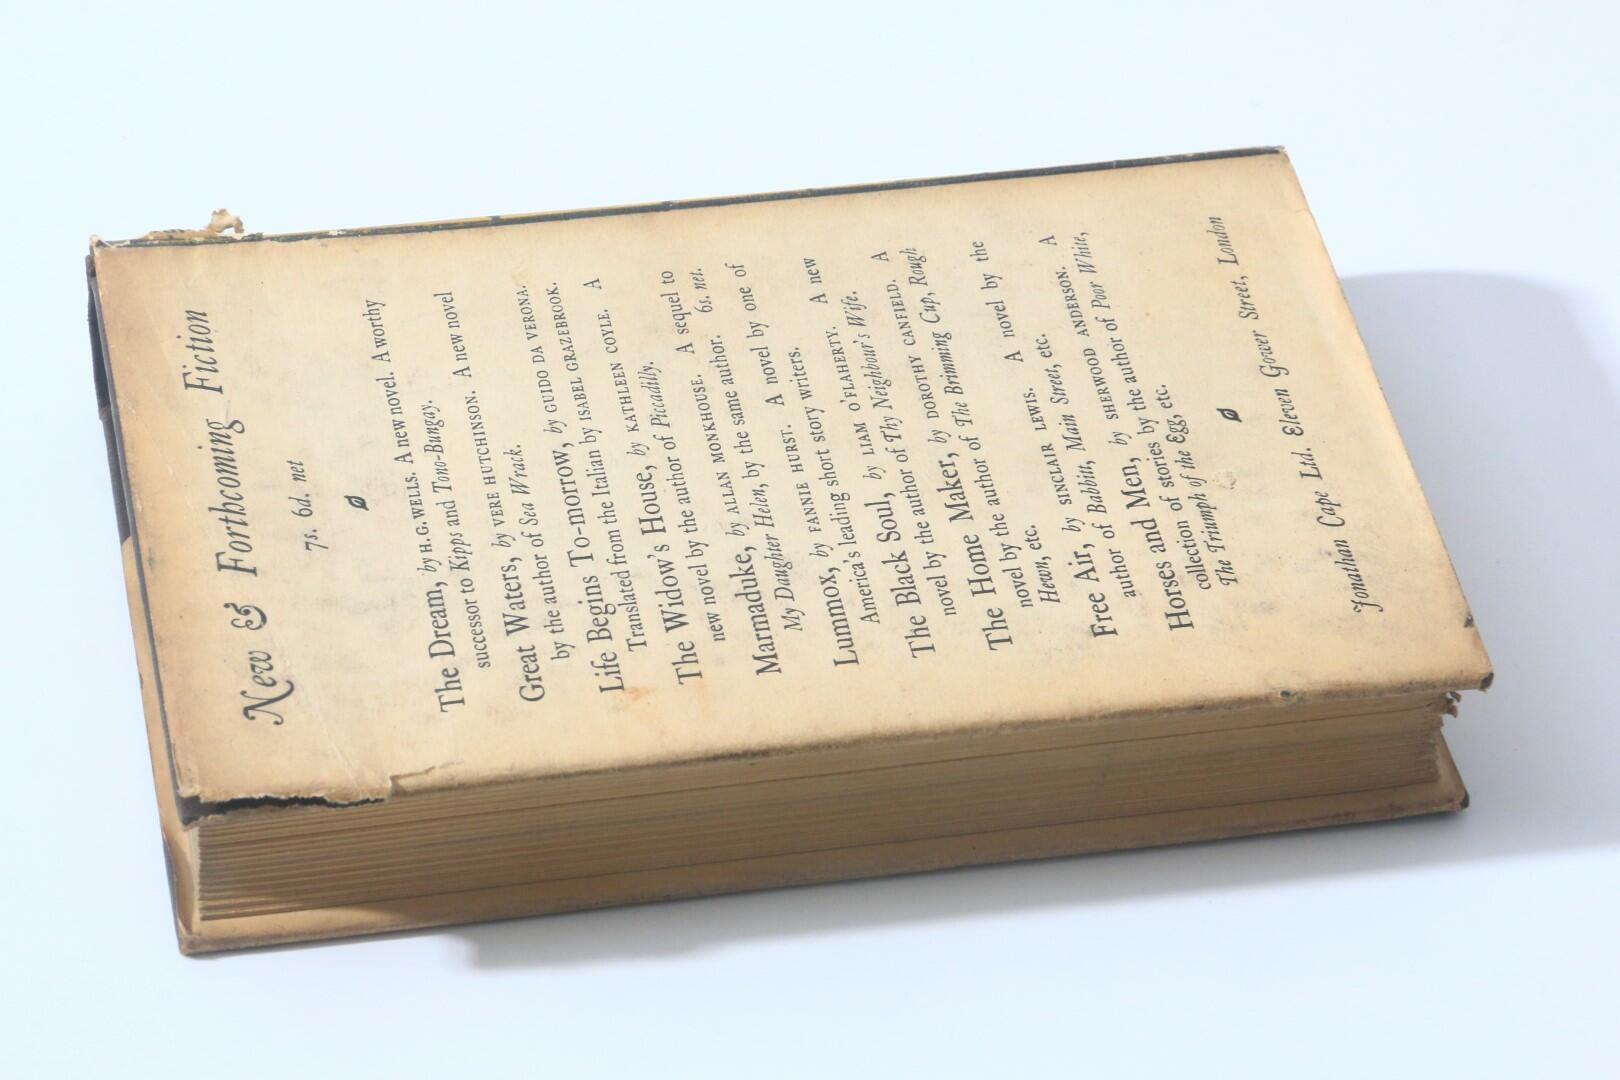 New & Forthcoming Fiction
7s. 6d. net
The Dream, by H. G. WELLS. A new novel. A worthy
successor to Kipps and Tono-Bungay.
Great Waters, by VERE HUTCHINSON. A new novel
by the author of Sea Wrack.
Life Begins To-morrow, by GUIDO DA VERONA.
Translated from the Italian by ISABEL GRAZEBROOK.
The Widow's House, by KATHLEEN COYLE. A
new novel by the author of Piccadilly.
Marmaduke, by ALLAN MONKHOUSE. A sequel to
My Daughter Helen, by the same author. 6s. net.
Lummox, by FANNIE HURST. A novel by one of
America's leading short story writers.
The Black Soul, by LIAM O'FLAHERTY. A new
novel by the author of Thy Neighbour's Wife.
The Home Maker, by DOROTHY CANFIELD. A
novel by the author of The Brimming Cup, Rough
Hewn, etc.
Free Air, by SINCLAIR LEWIS. A novel by the
author of Babbitt, Main Street, etc.
Horses and Men, by SHERWOOD ANDERSON. A
collection of stories by the author of Poor White,
The Triumph of the Egg, etc.
Jonathan Cape Ltd. Eleven Gower Street, London